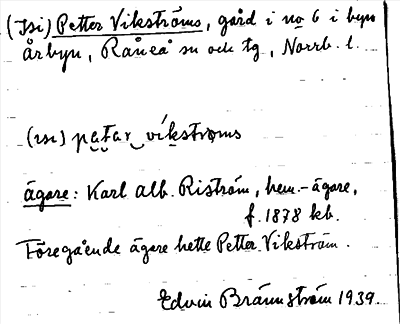 (Isi) Petter Vikströms, gård i no 6 i byn
Årbyn, Råneå sn och tg, Norrb. l.
(ısı) pa̤tar vikstroms
ägare: Karl Alb. Riström, hem.-ägare,
f. 1878 kb.
Föregående ägare hette Petter Vikström.
Edvin Brännström 1939.